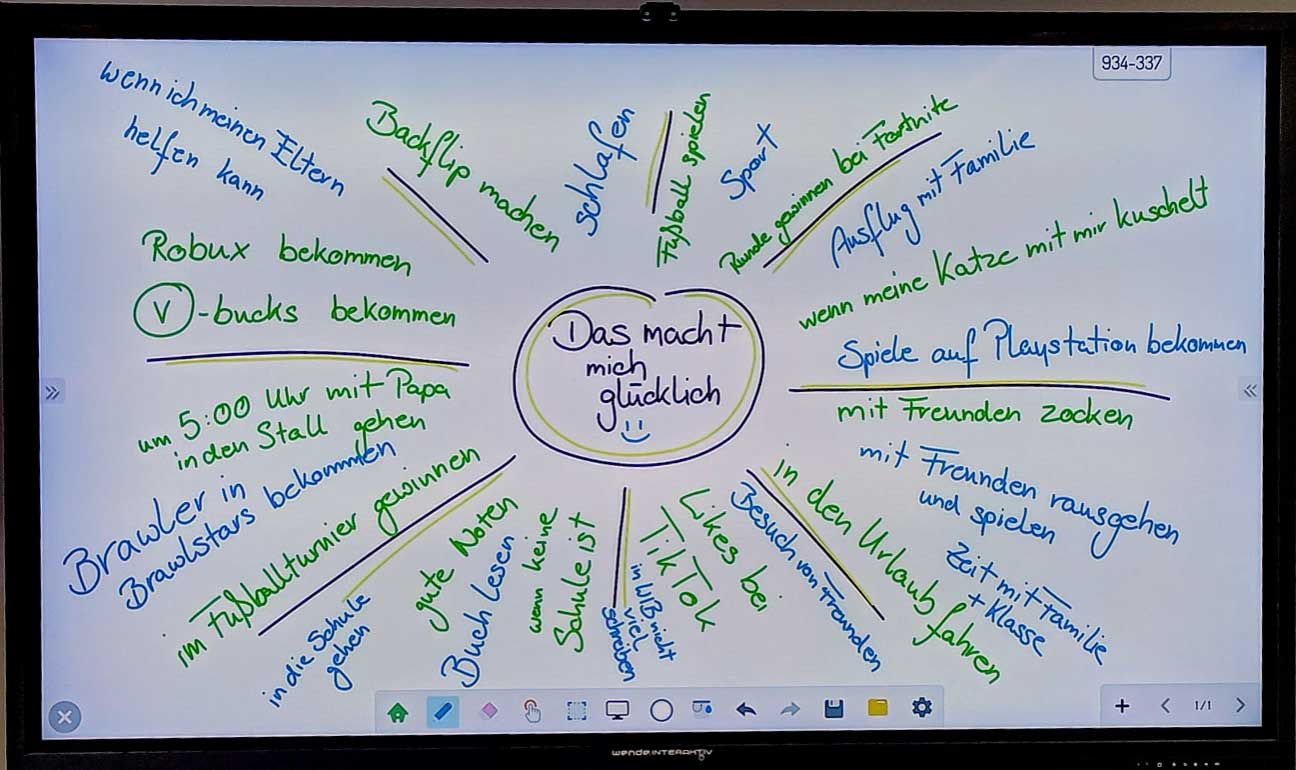 934-337
wenn ich meinen Eltern
helfen kann
Backflip machen
schlafen
Fußball spielen
Sport
Runde gewinnen bei Fortnite
Ausflug mit Familie
wenn meine Katze mit mir kuschelt
Robux bekommen
V-bucks bekommen
Das macht
mich
glücklich
Spiele auf Playstation bekommen
mit Freunden zocken
um 5:00 Uhr mit Papa
in den Stall gehen
Brawler in
Brawlstars bekommen
im Fußballturnier gewinnen
in die Schule
gehen
gute Noten
Buch lesen
wenn keine
Schule ist
in WIB nicht
viel
schreiben
Likes bei
TikTok
Besuch von Freunden
in den Urlaub fahren
mit Freunden rausgehen
und spielen
Zeit mit Familie
+ Klasse
1/1
wende.INTERAKTIV